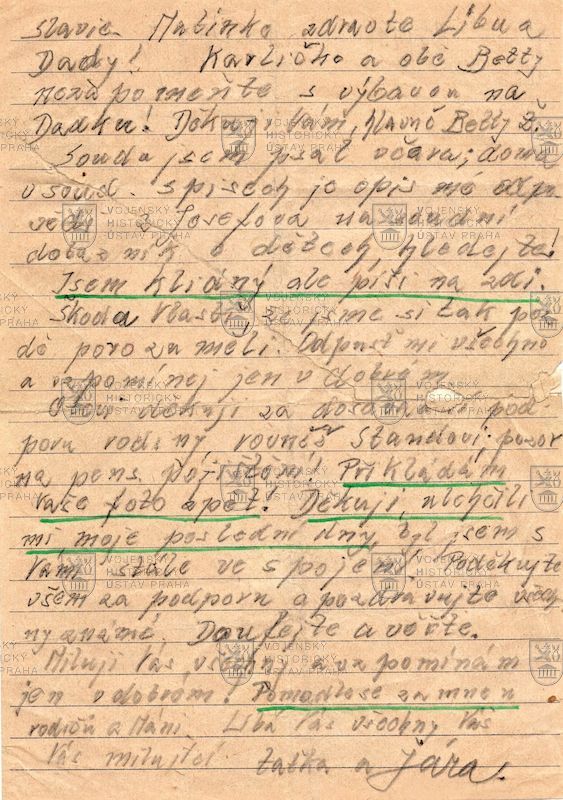 slavie Matinko zdravte Libu a
Dady! Karlíčko a obě Betty
nezapomeňte s výbavou na
Dadku! Děkuji Vám, hlavně Betty Ž.
Soudu jsem psal včera; doma
v soud. spisech je opis mé odpo
vedi z Josefova na soudní
dotazník o dětech, hledejte!
Jsem klidný ale píši na zdi.
Škoda Vlasti, že jsme si tak poz
dě poro za meli. Odpusť mi všechno
a vzpomínej jen v dobrém
děkuji za pod-
poru rodiny rovněž Standovi; pozor
na pens. pojištění! Přikládám
Vaše foto zpět. Děkuji, ulehčili
mi moje poslední dny, byl jsem s
Vámi stále ve spojení. Poděkujte
všem za podporu a pozdravujte všech
ny známé. Doufejte a věřte.
Miluji Vás všechny a vzpomínám
jen v dobrém! Pomodlete se za mne u
rodičů a Máni Líbá Vás všechny Váš
Vás milující taťka a Jára.
VOJENSKÝ
HISTORICKÝ
ÚSTAV PRAHA